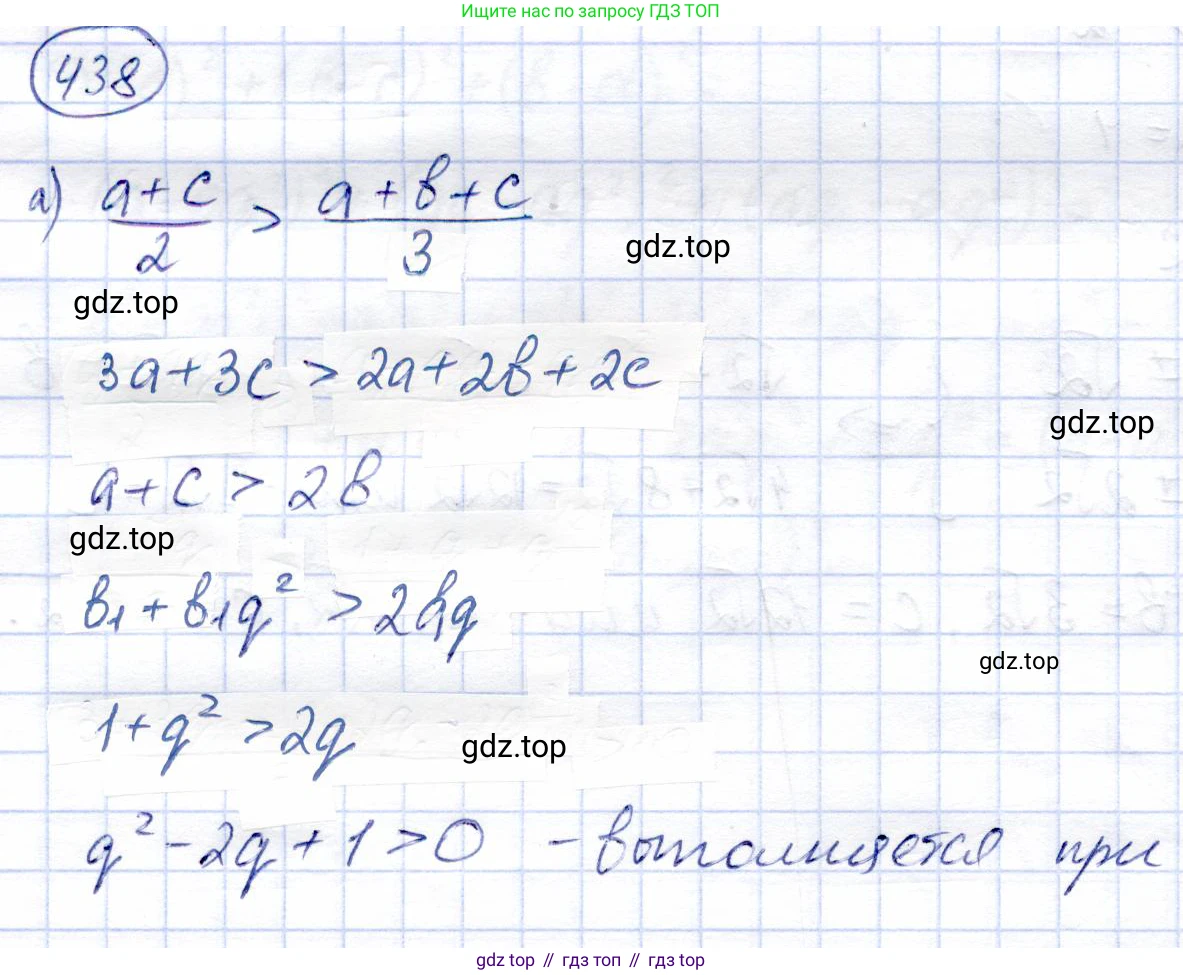 Ищите нас по запросу ГДЗ ТОП
438
а) (a+c)/2 > (a+b+c)/3
gdz.top
gdz.top
3a+3c > 2a+2b+2c
gdz.top
a+c > 2b
gdz.top
b₁ + b₁q² > 2b₁q
gdz.top
1+q² > 2q
gdz.top
q² - 2q + 1 > 0 - выполняется при
gdz top // гдз топ // gdz top